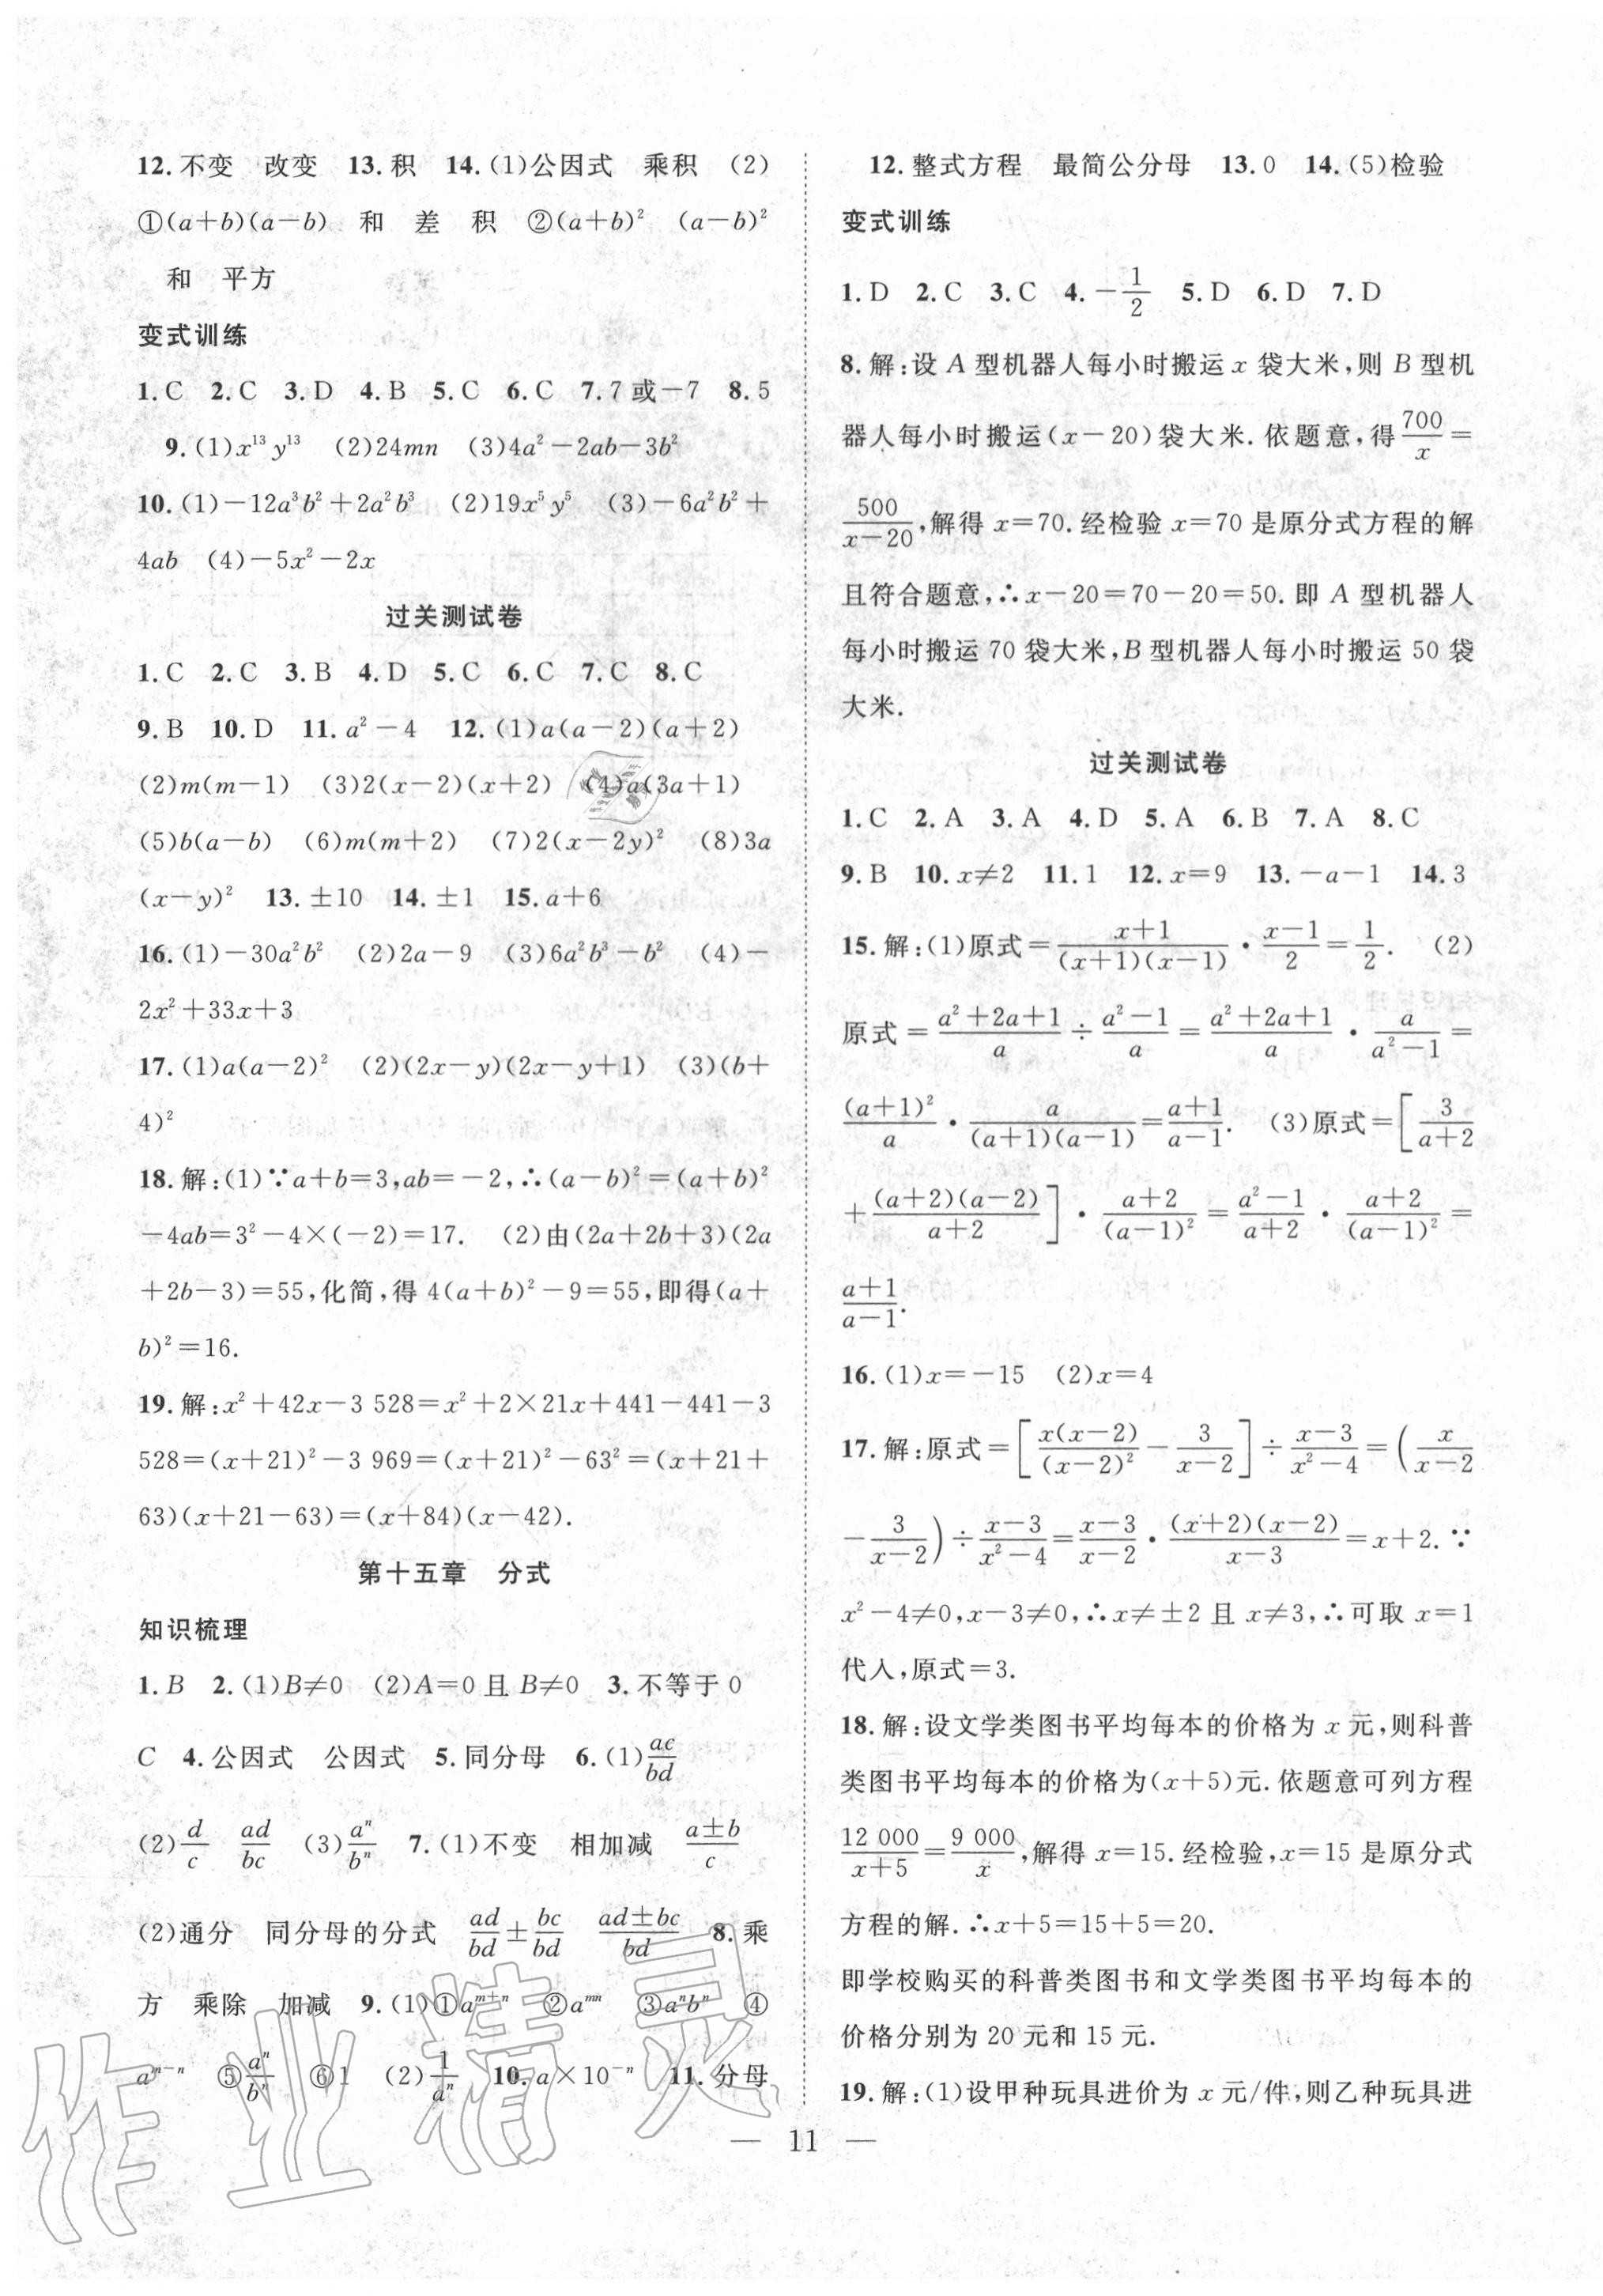 12.不变　改变　13.积　14.(1)公因式　乘积　(2)
①(a+b)(a-b)　和　差　积　②(a+b)²　(a-b)²
和　平方
变式训练
1.C　2.C　3.D　4.B　5.C　6.C　7.7或-7　8.5
9.(1)x¹³y¹³　(2)24mn　(3)4a²-2ab-3b²
10.(1)-12a³b²+2a²b³　(2)19x⁵y⁵　(3)-6a²b²+
4ab　(4)-5x²-2x
过关测试卷
1.C　2.C　3.B　4.D　5.C　6.C　7.C　8.C
9.B　10.D　11.a²-4　12.(1)a(a-2)(a+2)
(2)m(m-1)　(3)2(x-2)(x+2)　(4)a(3a+1)
(5)b(a-b)　(6)m(m+2)　(7)2(x-2y)²　(8)3a
(x-y)²　13.±10　14.±1　15.a+6
16.(1)-30a²b²　(2)2a-9　(3)6a²b³-b²　(4)-
2x²+33x+3
17.(1)a(a-2)²　(2)(2x-y)(2x-y+1)　(3)(b+
4)²
18.解:(1)∵a+b=3,ab=-2,∴(a-b)²=(a+b)²
-4ab=3²-4×(-2)=17.　(2)由(2a+2b+3)(2a
+2b-3)=55,化简,得4(a+b)²-9=55,即得(a+
b)²=16.
19.解:x²+42x-3 528=x²+2×21x+441-441-3
528=(x+21)²-3 969=(x+21)²-63²=(x+21+
63)(x+21-63)=(x+84)(x-42).
第十五章　分式
知识梳理
1.B　2.(1)B≠0　(2)A=0且B≠0　3.不等于0
C　4.公因式　公因式　5.同分母　6.(1)ac/bd
(2)d/c　ad/bc　(3)aⁿ/bⁿ　7.(1)不变　相加减　(a±b)/c
(2)通分　同分母的分式　ad/bd±bc/bd　(ad±bc)/bd　8.乘
方　乘除　加减　9.(1)①aᵐ⁺ⁿ　②aᵐⁿ　③aⁿbⁿ　④
aᵐ⁻ⁿ　⑤aⁿ/bⁿ　⑥1　(2)1/aⁿ　10.a×10⁻ⁿ　11.分母
12.整式方程　最简公分母　13.0　14.(5)检验
变式训练
1.D　2.C　3.C　4.-1/2　5.D　6.D　7.D
8.解:设A型机器人每小时搬运x袋大米,则B型机
器人每小时搬运(x-20)袋大米.依题意,得700/x=
500/(x-20),解得x=70.经检验x=70是原分式方程的解
且符合题意,∴x-20=70-20=50.即A型机器人
每小时搬运70袋大米,B型机器人每小时搬运50袋
大米.
过关测试卷
1.C　2.A　3.A　4.D　5.A　6.B　7.A　8.C
9.B　10.x≠2　11.1　12.x=9　13.-a-1　14.3
15.解:(1)原式=(x+1)/((x+1)(x-1))·(x-1)/2=1/2.　(2)
原式=(a²+2a+1)/a÷(a²-1)/a=(a²+2a+1)/a·a/(a²-1)=
(a+1)²/a·a/((a+1)(a-1))=(a+1)/(a-1).　(3)原式=[3/(a+2)
+(a+2)(a-2)/(a+2)]·(a+2)/(a-1)²=(a²-1)/(a+2)·(a+2)/(a-1)²=
(a+1)/(a-1).
16.(1)x=-15　(2)x=4
17.解:原式=[x(x-2)/(x-2)²-3/(x-2)]÷(x-3)/(x²-4)=(x/(x-2)
-3/(x-2))÷(x-3)/(x²-4)=(x-3)/(x-2)·(x+2)(x-2)/(x-3)=x+2.∵
x²-4≠0,x-3≠0,∴x≠±2且x≠3,∴可取x=1
代入,原式=3.
18.解:设文学类图书平均每本的价格为x元,则科普
类图书平均每本的价格为(x+5)元.依题意可列方程
12 000/(x+5)=9 000/x,解得x=15.经检验,x=15是原分式
方程的解.∴x+5=15+5=20.
即学校购买的科普类图书和文学类图书平均每本的
价格分别为20元和15元.
19.解:(1)设甲种玩具进价为x元/件,则乙种玩具进
— 11 —
作业精灵